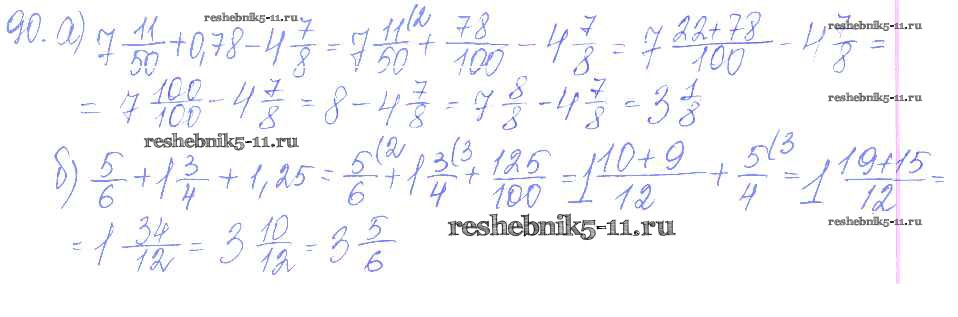 90. а) 7 11/50 + 0,78 - 4 7/8 = 7 11(2/50 + 78/100 - 4 7/8 = 7 22+78/100 - 4 7/8 =
= 7 100/100 - 4 7/8 = 8 - 4 7/8 = 7 8/8 - 4 7/8 = 3 1/8
б) 5/6 + 1 3/4 + 1,25 = 5(2/6 + 1 3(3/4 + 125/100 = 1 10+9/12 + 5(3/4 = 1 19+15/12 =
= 1 34/12 = 3 10/12 = 3 5/6
reshebnik5-11.ru
reshebnik5-11.ru
reshebnik5-11.ru
reshebnik5-11.ru
reshebnik5-11.ru
reshebnik5-11.ru
reshebnik5-11.ru